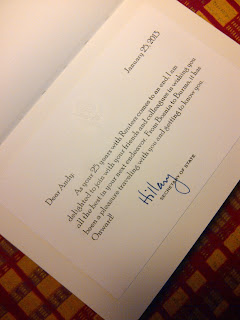 January 25, 2013
Dear Andy,
As your 25 years with Reuters comes to an end, I am
delighted to join with your friends and colleagues in wishing you
all the best in your next endeavor. From Bosnia to Burma, it has
been a pleasure traveling with you and getting to know you.
Onward!
Hillary
SECRETARY OF STATE